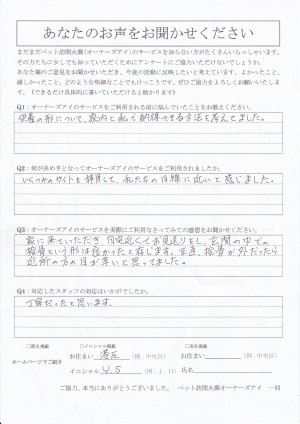 あなたのお声をお聞かせください
まだまだペット訪問火葬(オーナーズアイ)のサービスを知らない方がたくさんいらっしゃいます。
その方たちに少しでも知っていただくためにアンケートにご協力いただけないでしょうか。
あなた様のご意見をお聞かせいただき、今後の活動に反映したいと考えています。よかったこと、
嬉しかったこと、どのような些細なことでもけっこうです。ぜひご協力をよろしくお願いいたします。
(できるだけ具体的に書いていただけると助かります)
Q1:オーナーズアイのサービスをご利用される前に悩んでいたことをお教えください。
供養の形について、家内と私で納得できる方法を考えてました。
Q2:何が決め手となってオーナーズアイのサービスをご利用されましたか。
いくつかのサイトを拝見して、私たちの目線に近いと感じました。
Q3:オーナーズアイのサービスを実際にご利用なさってみての感想をお聞かせください。
家に来ていただき、自宅近くでお見送りをし、玄関の中での
拾骨という形は良かったと存じます。正直、拾骨が外だったら
近所の方の目が辛いと思ってました。
Q4:対応したスタッフの対応はいかがでしたか。
丁寧だったと思います。
□匿名掲載 □イニシャル掲載 □実名掲載
ホームページでご紹介
お住まい 港区 (例:中央区) お住まい (例:中央区)
イニシャル Y.S (例:J.H) 氏名
ご協力、本当にありがとうございました。 ペット訪問火葬オーナーズアイ 一同